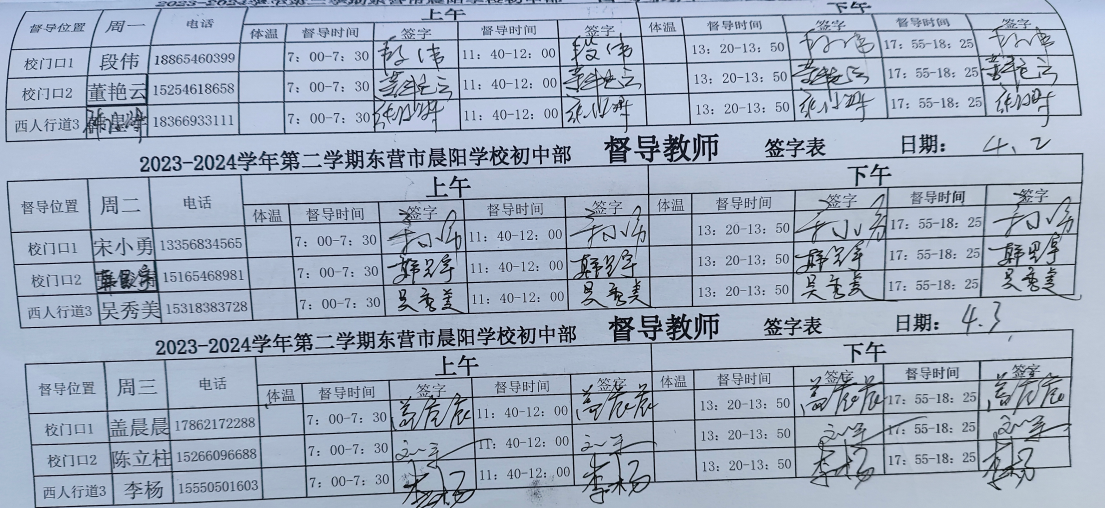 督导位置 周一 电话 上午 下午
体温 督导时间 签字 督导时间 签字 体温 督导时间 签字 督导时间 签字
校门口1 段伟 18865460399 7：00-7：30 段伟 11：40-12：00 段伟 13：20-13：50 17：55-18：25
校门口2 董艳云 15254618658 7：00-7：30 董艳云 11：40-12：00 董艳云 13：20-13：50 董艳云 17：55-18：25 董艳云
西人行道3 18366933111 7：00-7：30 11：40-12：00 13：20-13：50 17：55-18：25
2023-2024学年第二学期东营市晨阳学校初中部 督导教师 签字表 日期： 4.2
督导位置 周二 电话 上午 下午
体温 督导时间 签字 督导时间 签字 体温 督导时间 签字 督导时间 签字
校门口1 宋小勇 13356834565 7：00-7：30 11：40-12：00 13：20-13：50 17：55-18：25
校门口2 15165468981 7：00-7：30 11：40-12：00 13：20-13：50 17：55-18：25
西人行道3 吴秀美 15318383728 7：00-7：30 吴秀美 11：40-12：00 吴秀美 13：20-13：50 吴秀美 17：55-18：25 吴秀美
2023-2024学年第二学期东营市晨阳学校初中部 督导教师 签字表 日期： 4.3
督导位置 周三 电话 上午 下午
体温 督导时间 签字 督导时间 签字 体温 督导时间 签字 督导时间 签字
校门口1 盖晨晨 17862172288 7：00-7：30 11：40-12：00 13：20-13：50 17：55-18：25
校门口2 陈立柱 15266096688 7：00-7：30 11：40-12：00 13：20-13：50 17：55-18：25
西人行道3 李杨 15550501603 7：00-7：30 李杨 11：40-12：00 李杨 13：20-13：50 李杨 17：55-18：25 李杨